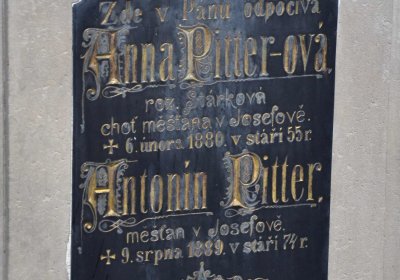 Zde v Pánu odpočívá
Anna Pitter-ová,
roz. Žďárková
choť měšťana v Josefově.
+ 6. února 1880. v stáří 55 r.
Antonín Pitter,
měšťan v Josefově.
+ 9. srpna 1889. v stáří 74 r.